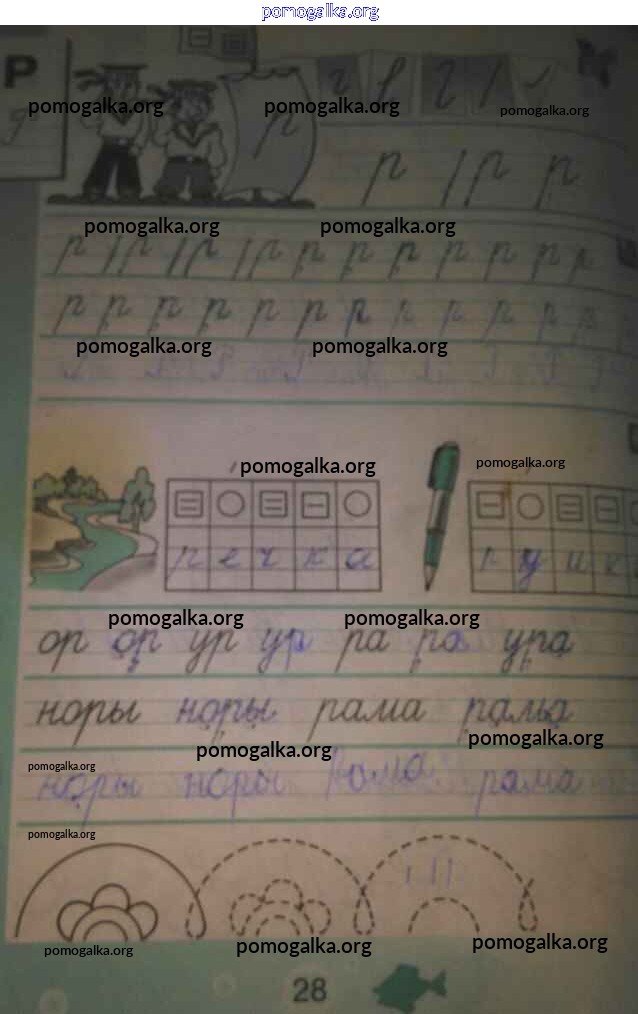 pomogalka.org
Р
pomogalka.org pomogalka.org pomogalka.org
р
р р р
pomogalka.org pomogalka.org
р р р р р р р р р р р
р р р р р р р р р р р р
pomogalka.org pomogalka.org
pomogalka.org pomogalka.org
р е ч к а р у ч к
pomogalka.org pomogalka.org
ор ор ур ур ра ра ура
норы норы рама рама
pomogalka.org pomogalka.org
pomogalka.org
норы норы рама рама
pomogalka.org
pomogalka.org pomogalka.org pomogalka.org
28